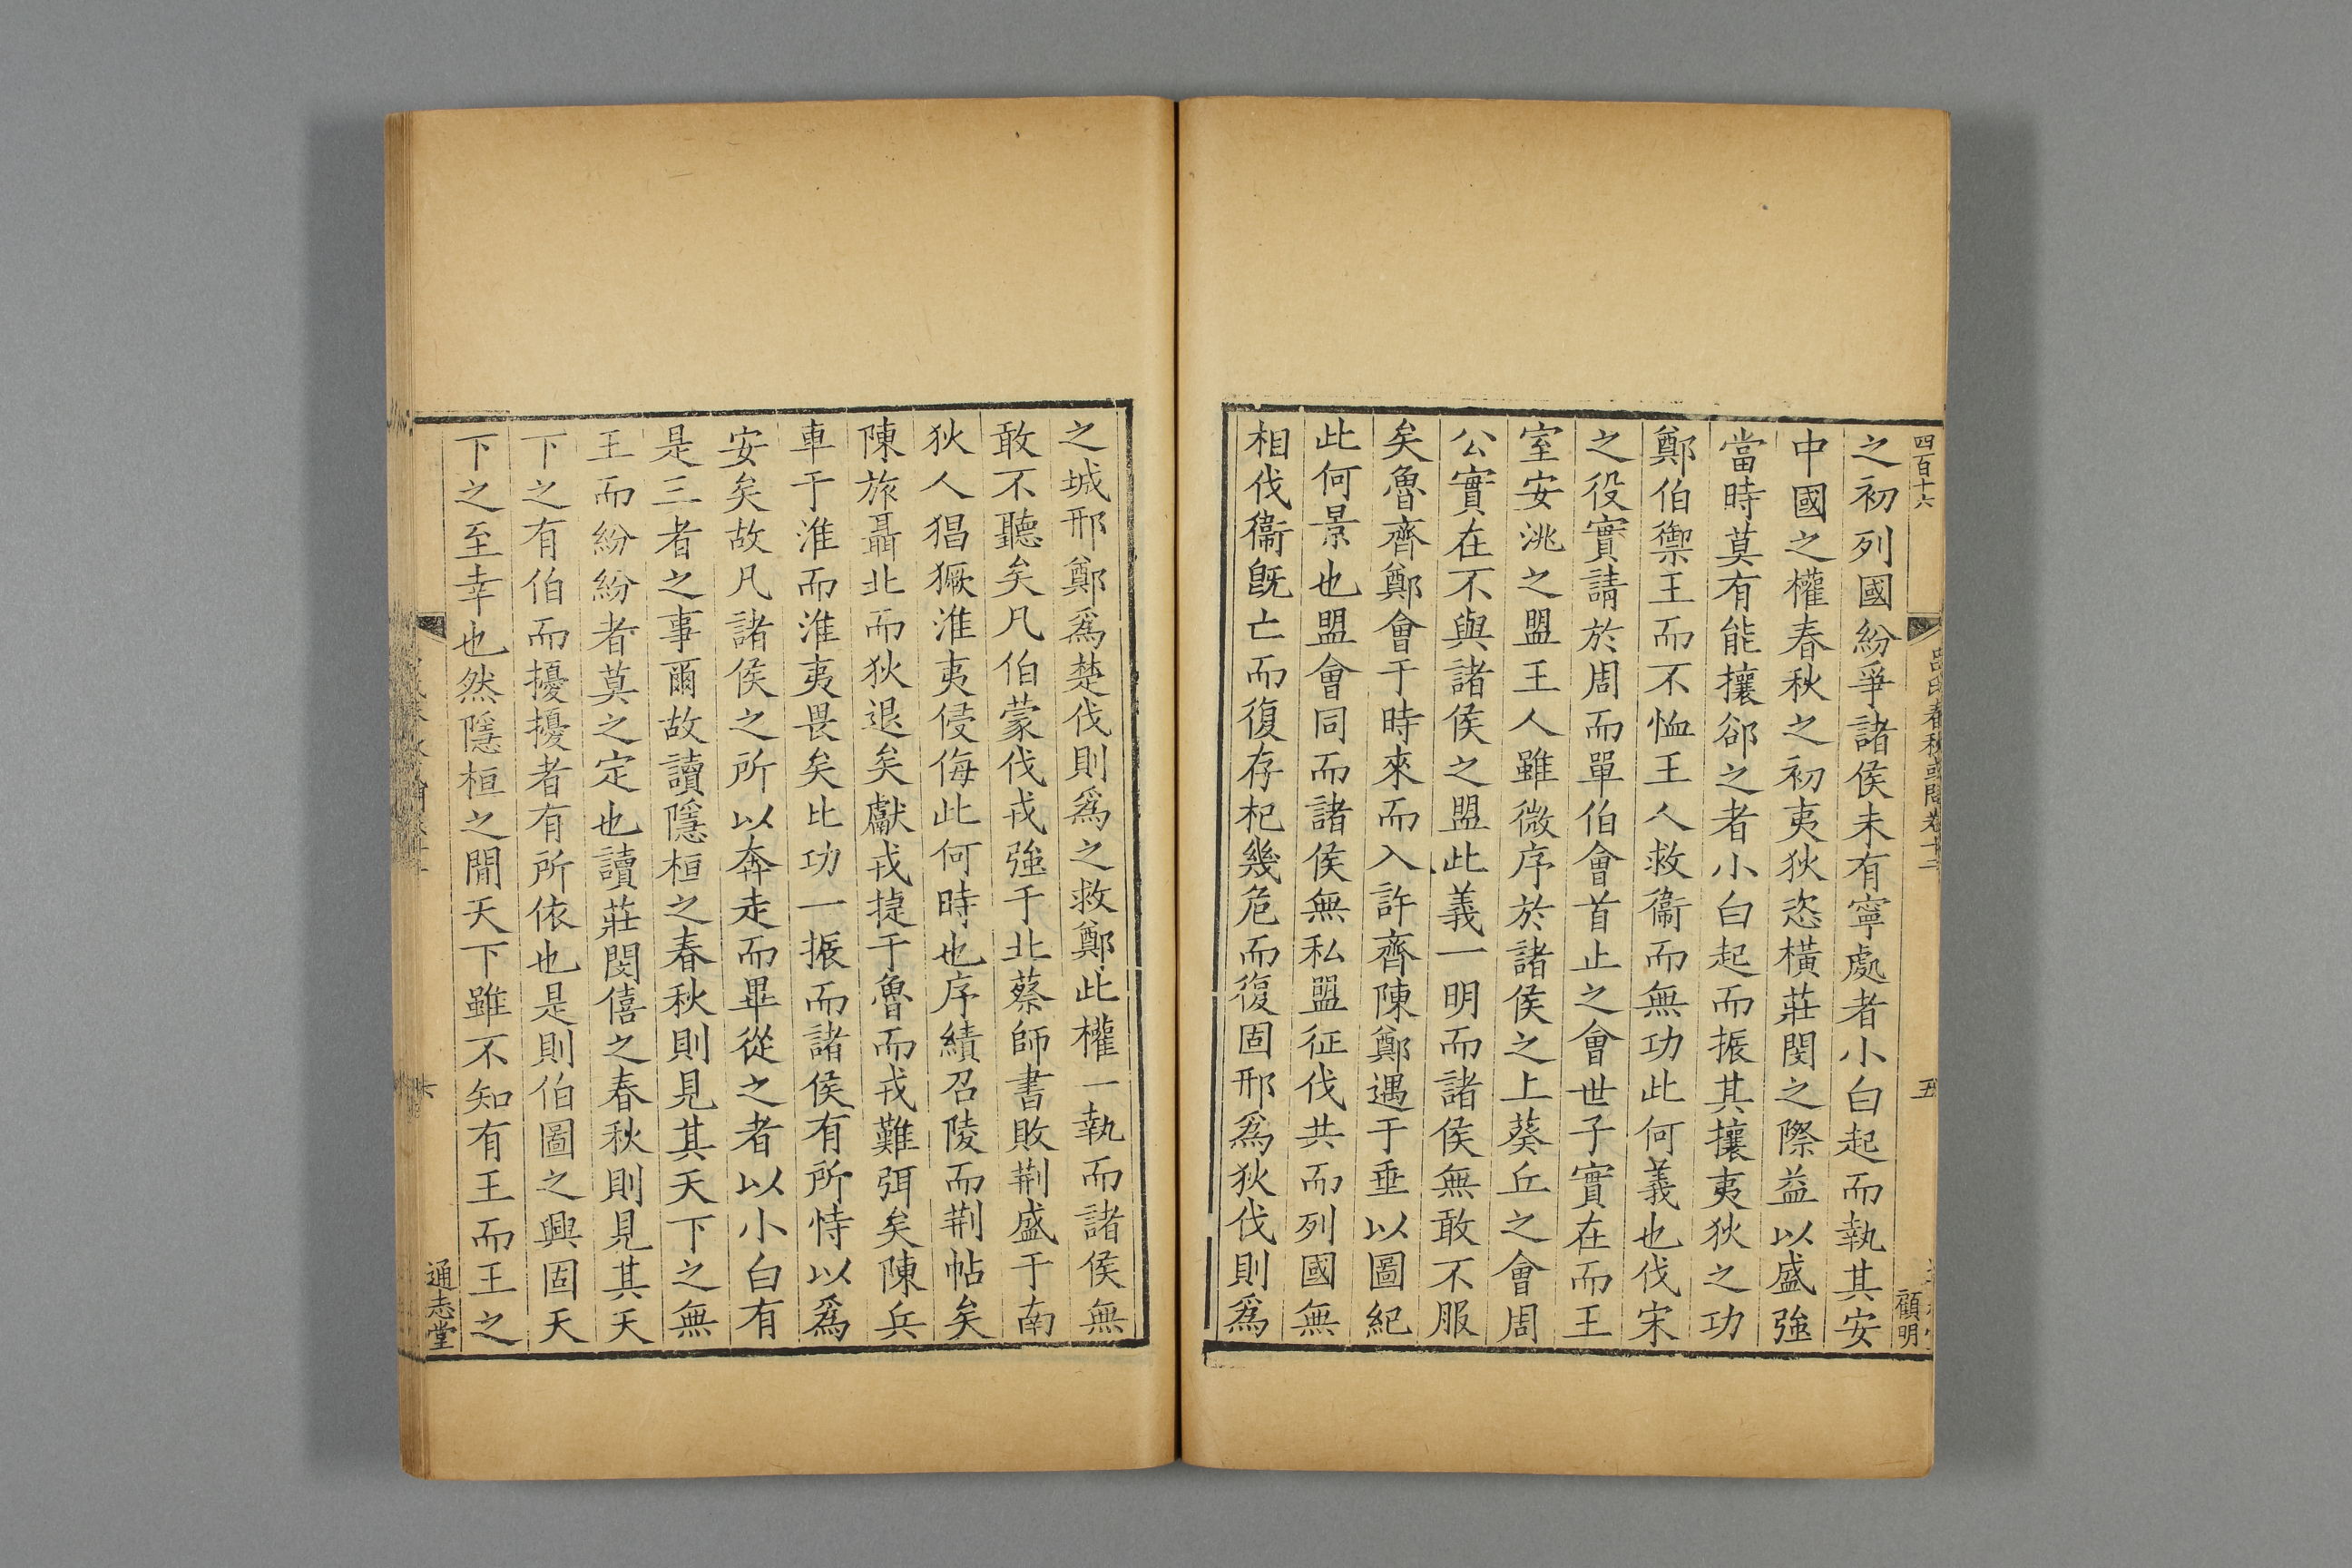 四百十六
呂氏春秋或問卷十二
五
顧明
之初列國紛爭諸侯未有寧處者小白起而執其安
中國之權春秋之初夷狄恣橫莊閔之際益以盛強
當時莫有能攘郤之者小白起而振其攘夷狄之功
鄭伯禦王而不恤王人救衞而無功此何義也伐宋
之役實請於周而單伯會首止之會世子實在而王
室安洮之盟王人雖微序於諸侯之上葵丘之會周
公實在不與諸侯之盟此義一明而諸侯無敢不服
矣魯齊鄭會于時來而入許齊陳鄭遇于垂以圖紀
此何景也盟會同而諸侯無私盟征伐共而列國無
相伐衞旣亡而復存杞幾危而復固邢爲狄伐則爲
之城邢鄭爲楚伐則爲之救鄭此權一執而諸侯無
敢不聽矣凡伯蒙伐戎強于北蔡師書敗荆盛于南
狄人猖獗淮夷侵侮此何時也序績召陵而荆帖矣
陳旅聶北而狄退矣獻戎捷于魯而戎難弭矣陳兵
車于淮而淮夷畏矣比功一振而諸侯有所恃以爲
安矣故凡諸侯之所以奔走而畢從之者以小白有
是三者之事爾故讀隱桓之春秋則見其天下之無
王而紛紛者莫之定也讀莊閔僖之春秋則見其天
下之有伯而擾擾者有所依也是則伯圖之興固天
下之至幸也然隱桓之閒天下雖不知有王而王之
通志堂